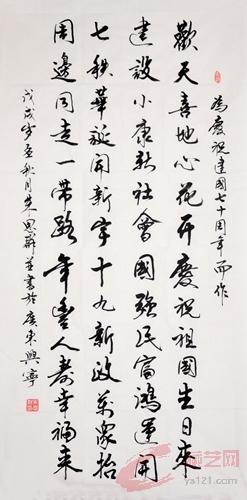 為慶祝建國七十周年而作
歡天喜地心花开慶祝祖國生日来
建設小康新社會國強民富鴻運開
七秩華誕開新字十九新政萬眾抬
周邊同走一帶路年豐人壽幸福来
戊戌岁孟秋月朱思並書於廣東興寧
艺网
ya121.com